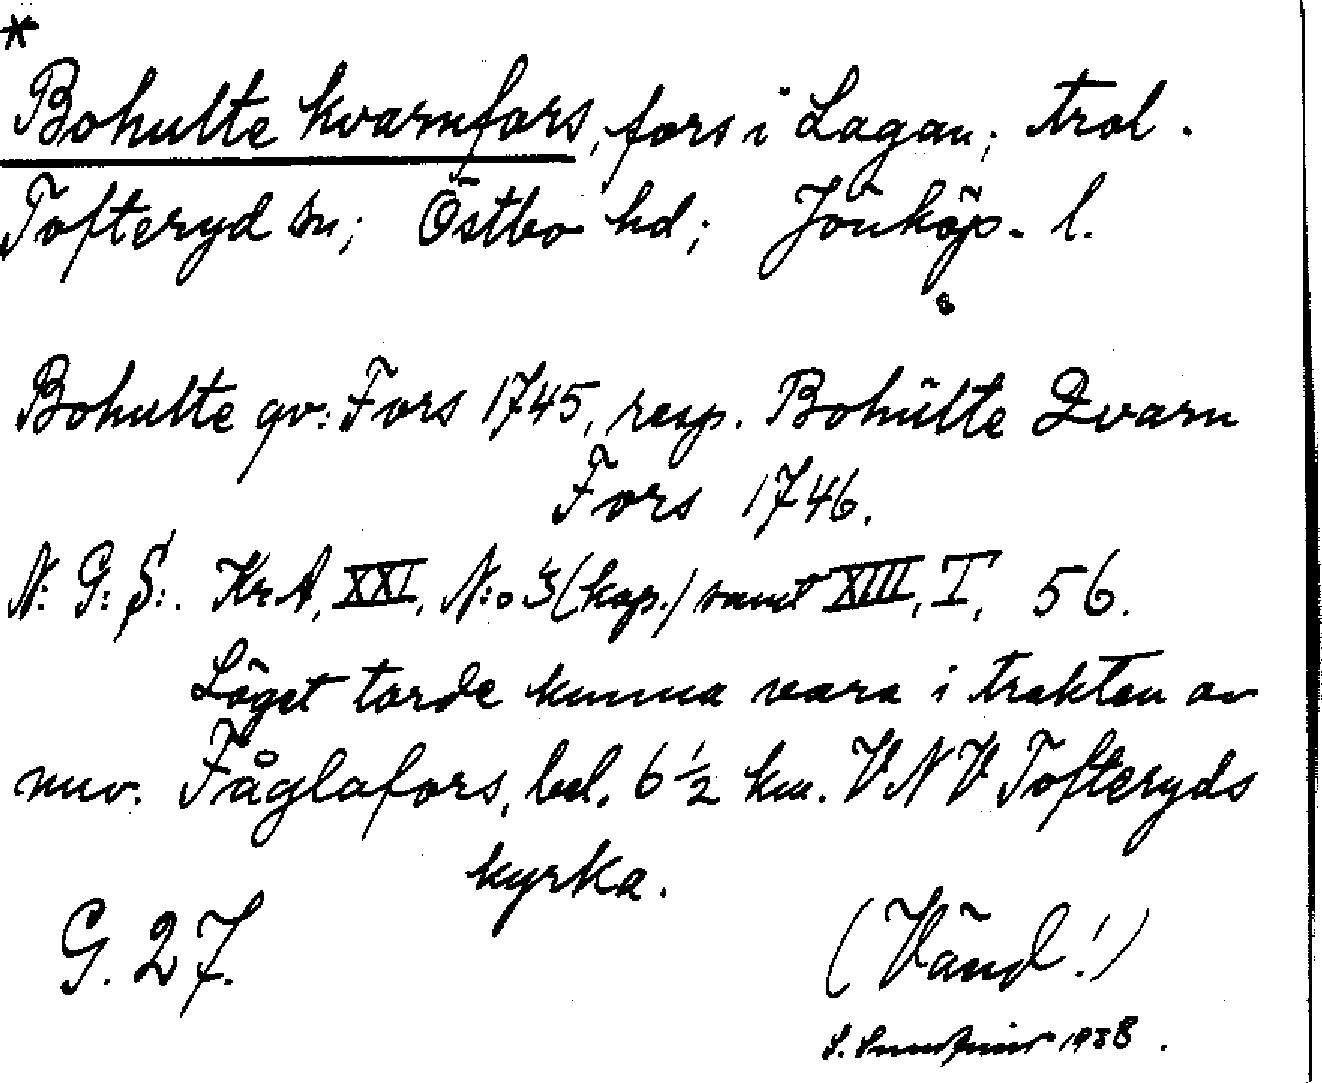 *
Bohulte kvarnfors, fors i Lagan; trol.
Tofteryd sn; Östbo hd; Jönköp. l.
s
Bohulte qv: Fors 1745, resp. Bohülte Qvarn
Fors 1746.
N: G: S:. Kr A, XXI, N:o 3 (kop.) samt XIII, I, 56.
Läget torde kunna vara i trakten av
nuv. Fåglafors, bel. 6 1/2 km. VNV Tofteryds
kyrka.
G. 27.
(Vänd!)
S. 1938.